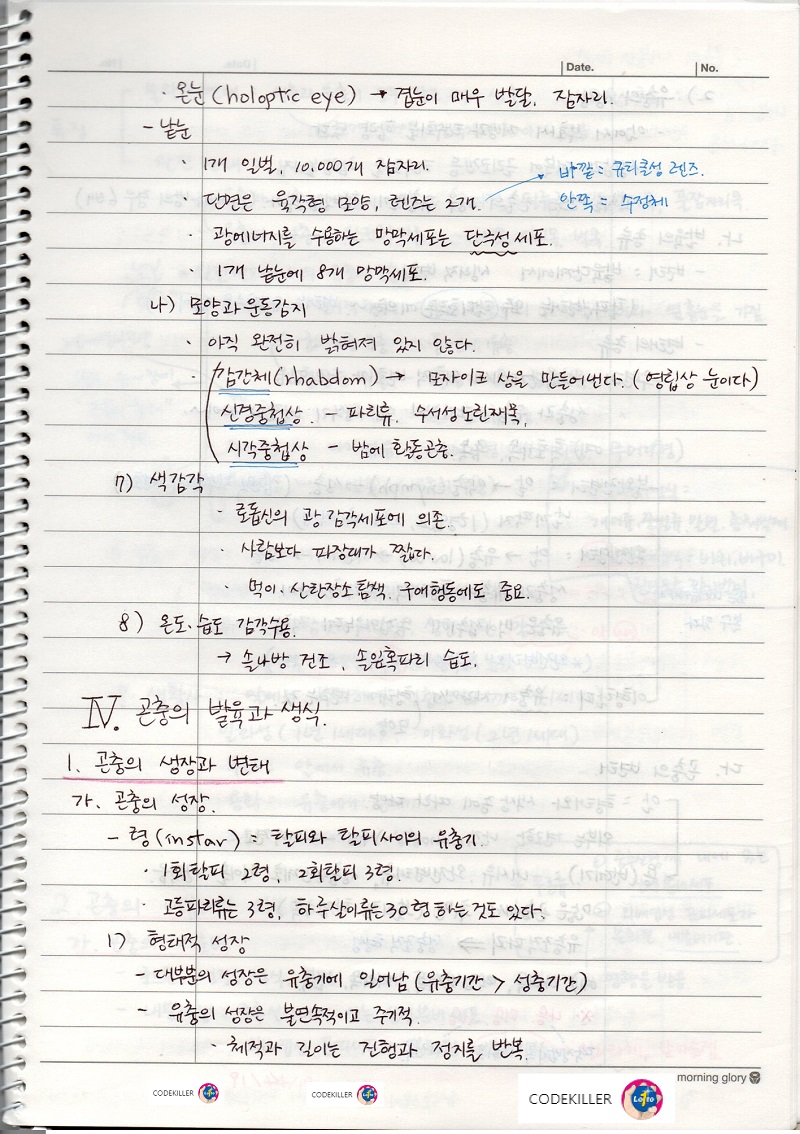 Date. No.
· 온눈(holoptic eye) → 겹눈이 매우 발달, 잠자리.
- 낱눈
· 1개 일벌, 10,000개 잠자리.
바깥 = 큐티클성 렌즈.
· 단면은 육각형 모양, 렌즈는 2개.
안쪽 = 수정체
· 광에너지를 수용하는 망막세포는 단극성 세포.
· 1개 낱눈에 8개 망막세포.
나) 모양과 운동감지
· 아직 완전히 밝혀져 있지 않다.
· 감간체(rhabdom) → 모자이크 상을 만들어낸다. (연립상 눈이다)
신경중첩상. - 파리류, 수서성노린재목,
시각중첩상 - 밤에 활동곤충.
7) 색감각
· 로돕신의 광감각세포에 의존.
· 사람보다 파장대가 짧다.
· 먹이·산란장소 탐색, 구애행동에도 중요.
8) 온도·습도 감각수용.
→ 솔나방 건조, 솔잎혹파리 습도.
Ⅳ. 곤충의 발육과 생식.
1. 곤충의 생장과 변태
가. 곤충의 성장.
- 령(instar) = 탈피와 탈피사이의 유충기.
· 1회탈피 2령, 2회탈피 3령.
· 고등파리류는 3령, 하루살이류는 30령 하는것도 있다.
1) 형태적 성장
- 대부분의 성장은 유충기에 일어남 (유충기간 > 성충기간)
- 유충의 성장은 불연속적이고 주기적.
· 체적과 길이는 진행과 정지를 반복.
morning glory
CODEKILLER Lotto CODEKILLER Lotto CODEKILLER Lotto